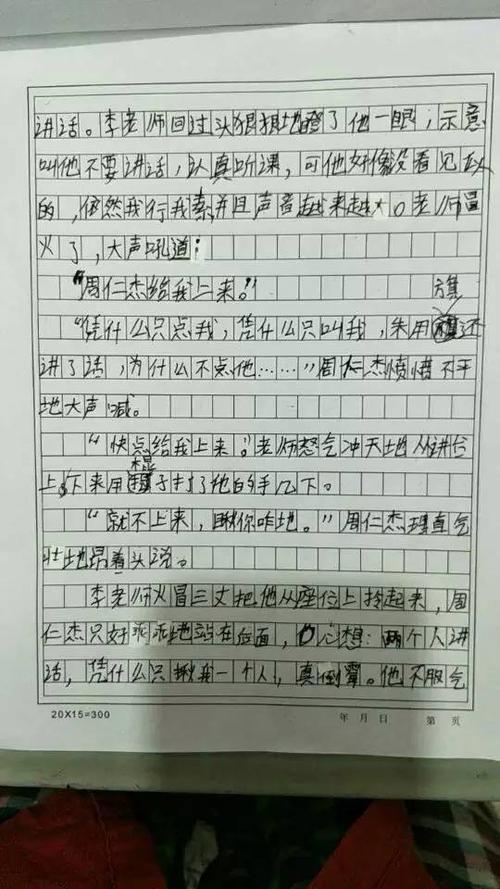 讲话。李老师回过头狠狠地瞪了他一眼，示意
叫他不要讲话，认真听课，可他好像没看见似
的，依然我行我素，并且声音越来越大。老师冒
火了，大声吼道：
“周仁杰给我上来。”
旗
“凭什么只点我，凭什么只叫我，朱用还
讲了话，为什么不点他……”周仁杰愤愤不平
地大声喊。
“快点给我上来。”老师怒气冲天地从讲台
棍
上下来用子打了他的手几下。
“就不上来，瞅你咋地。”周仁杰理直气
壮地昂着头说。
李老师火冒三丈把他从座位上拎起来，周
仁杰只好乖乖地站在后面，心想：两个人讲
话，凭什么只揪我一个人，真倒霉。他不服气
20X15=300
年 月 日 第 页